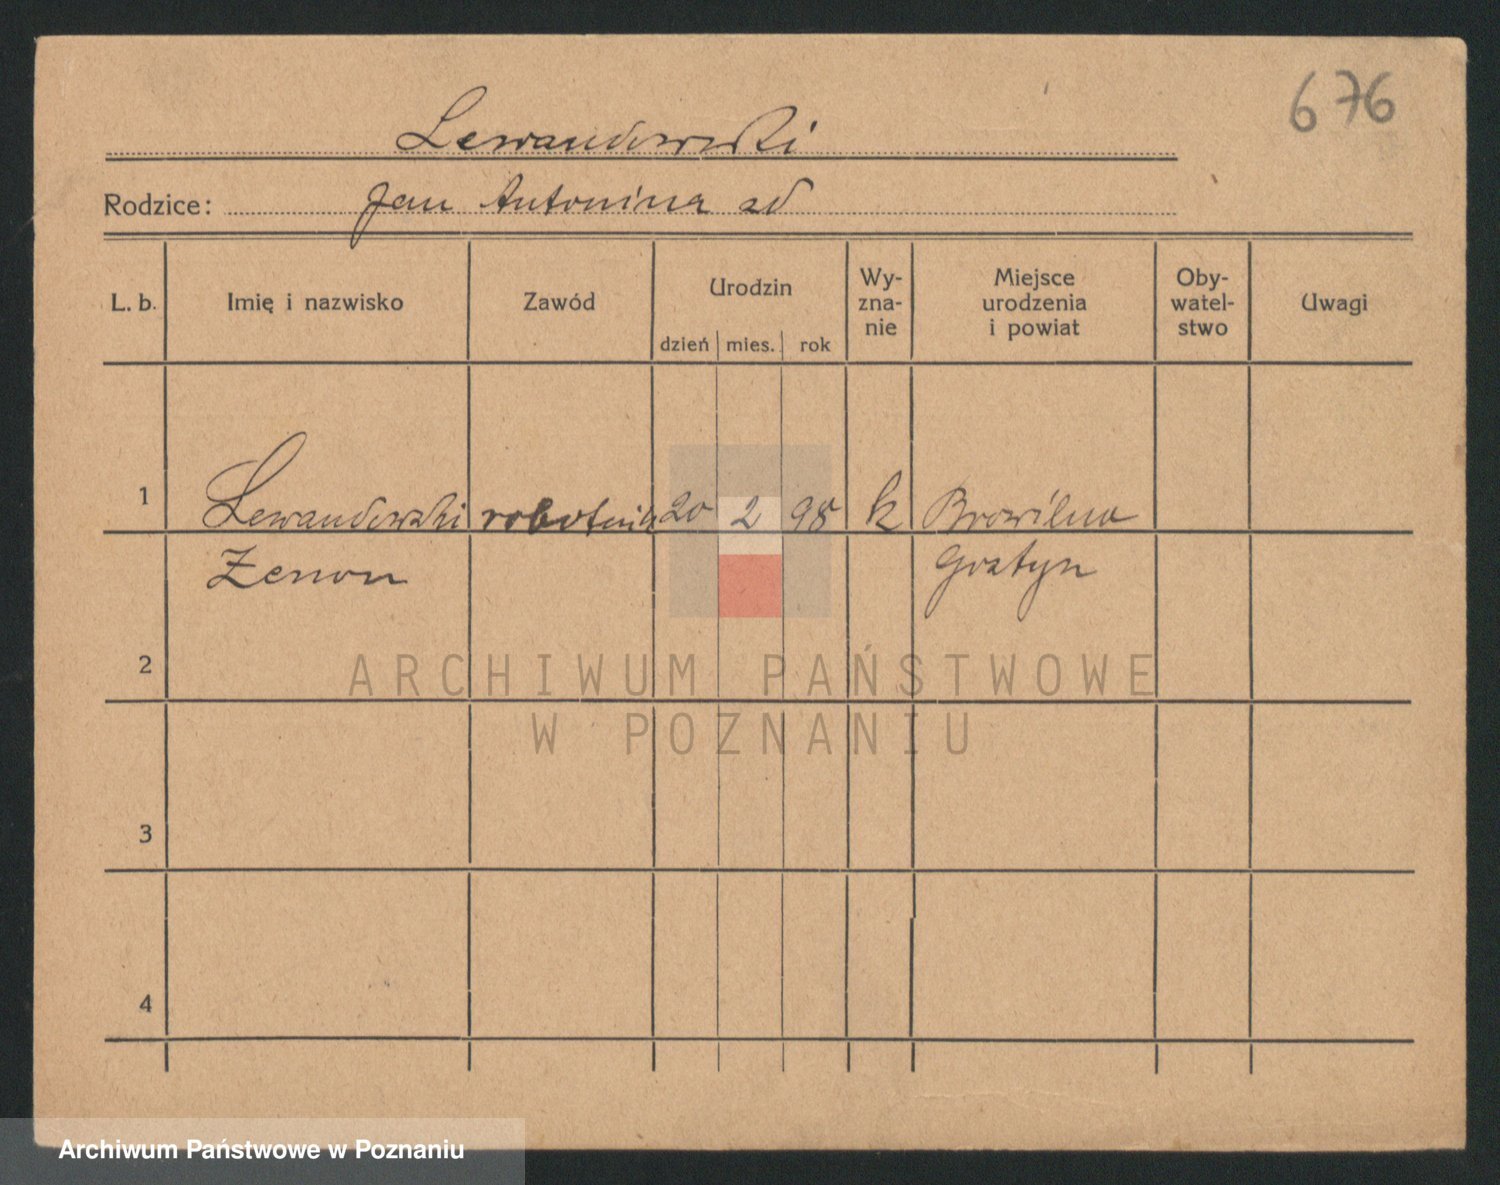 676
Lewandowski
Rodzice: Jan Antonina
L. b. Imię i nazwisko Zawód Urodzin dzień mies. rok Wy-zna-nie Miejsce urodzenia i powiat Oby-watel-stwo Uwagi
1 Lewandowski robotnik 20 2 98 k
Zenon Gostyn
2
ARCHIWUM PAŃSTWOWE
W POZNANIU
3
4
Archiwum Państwowe w Poznaniu